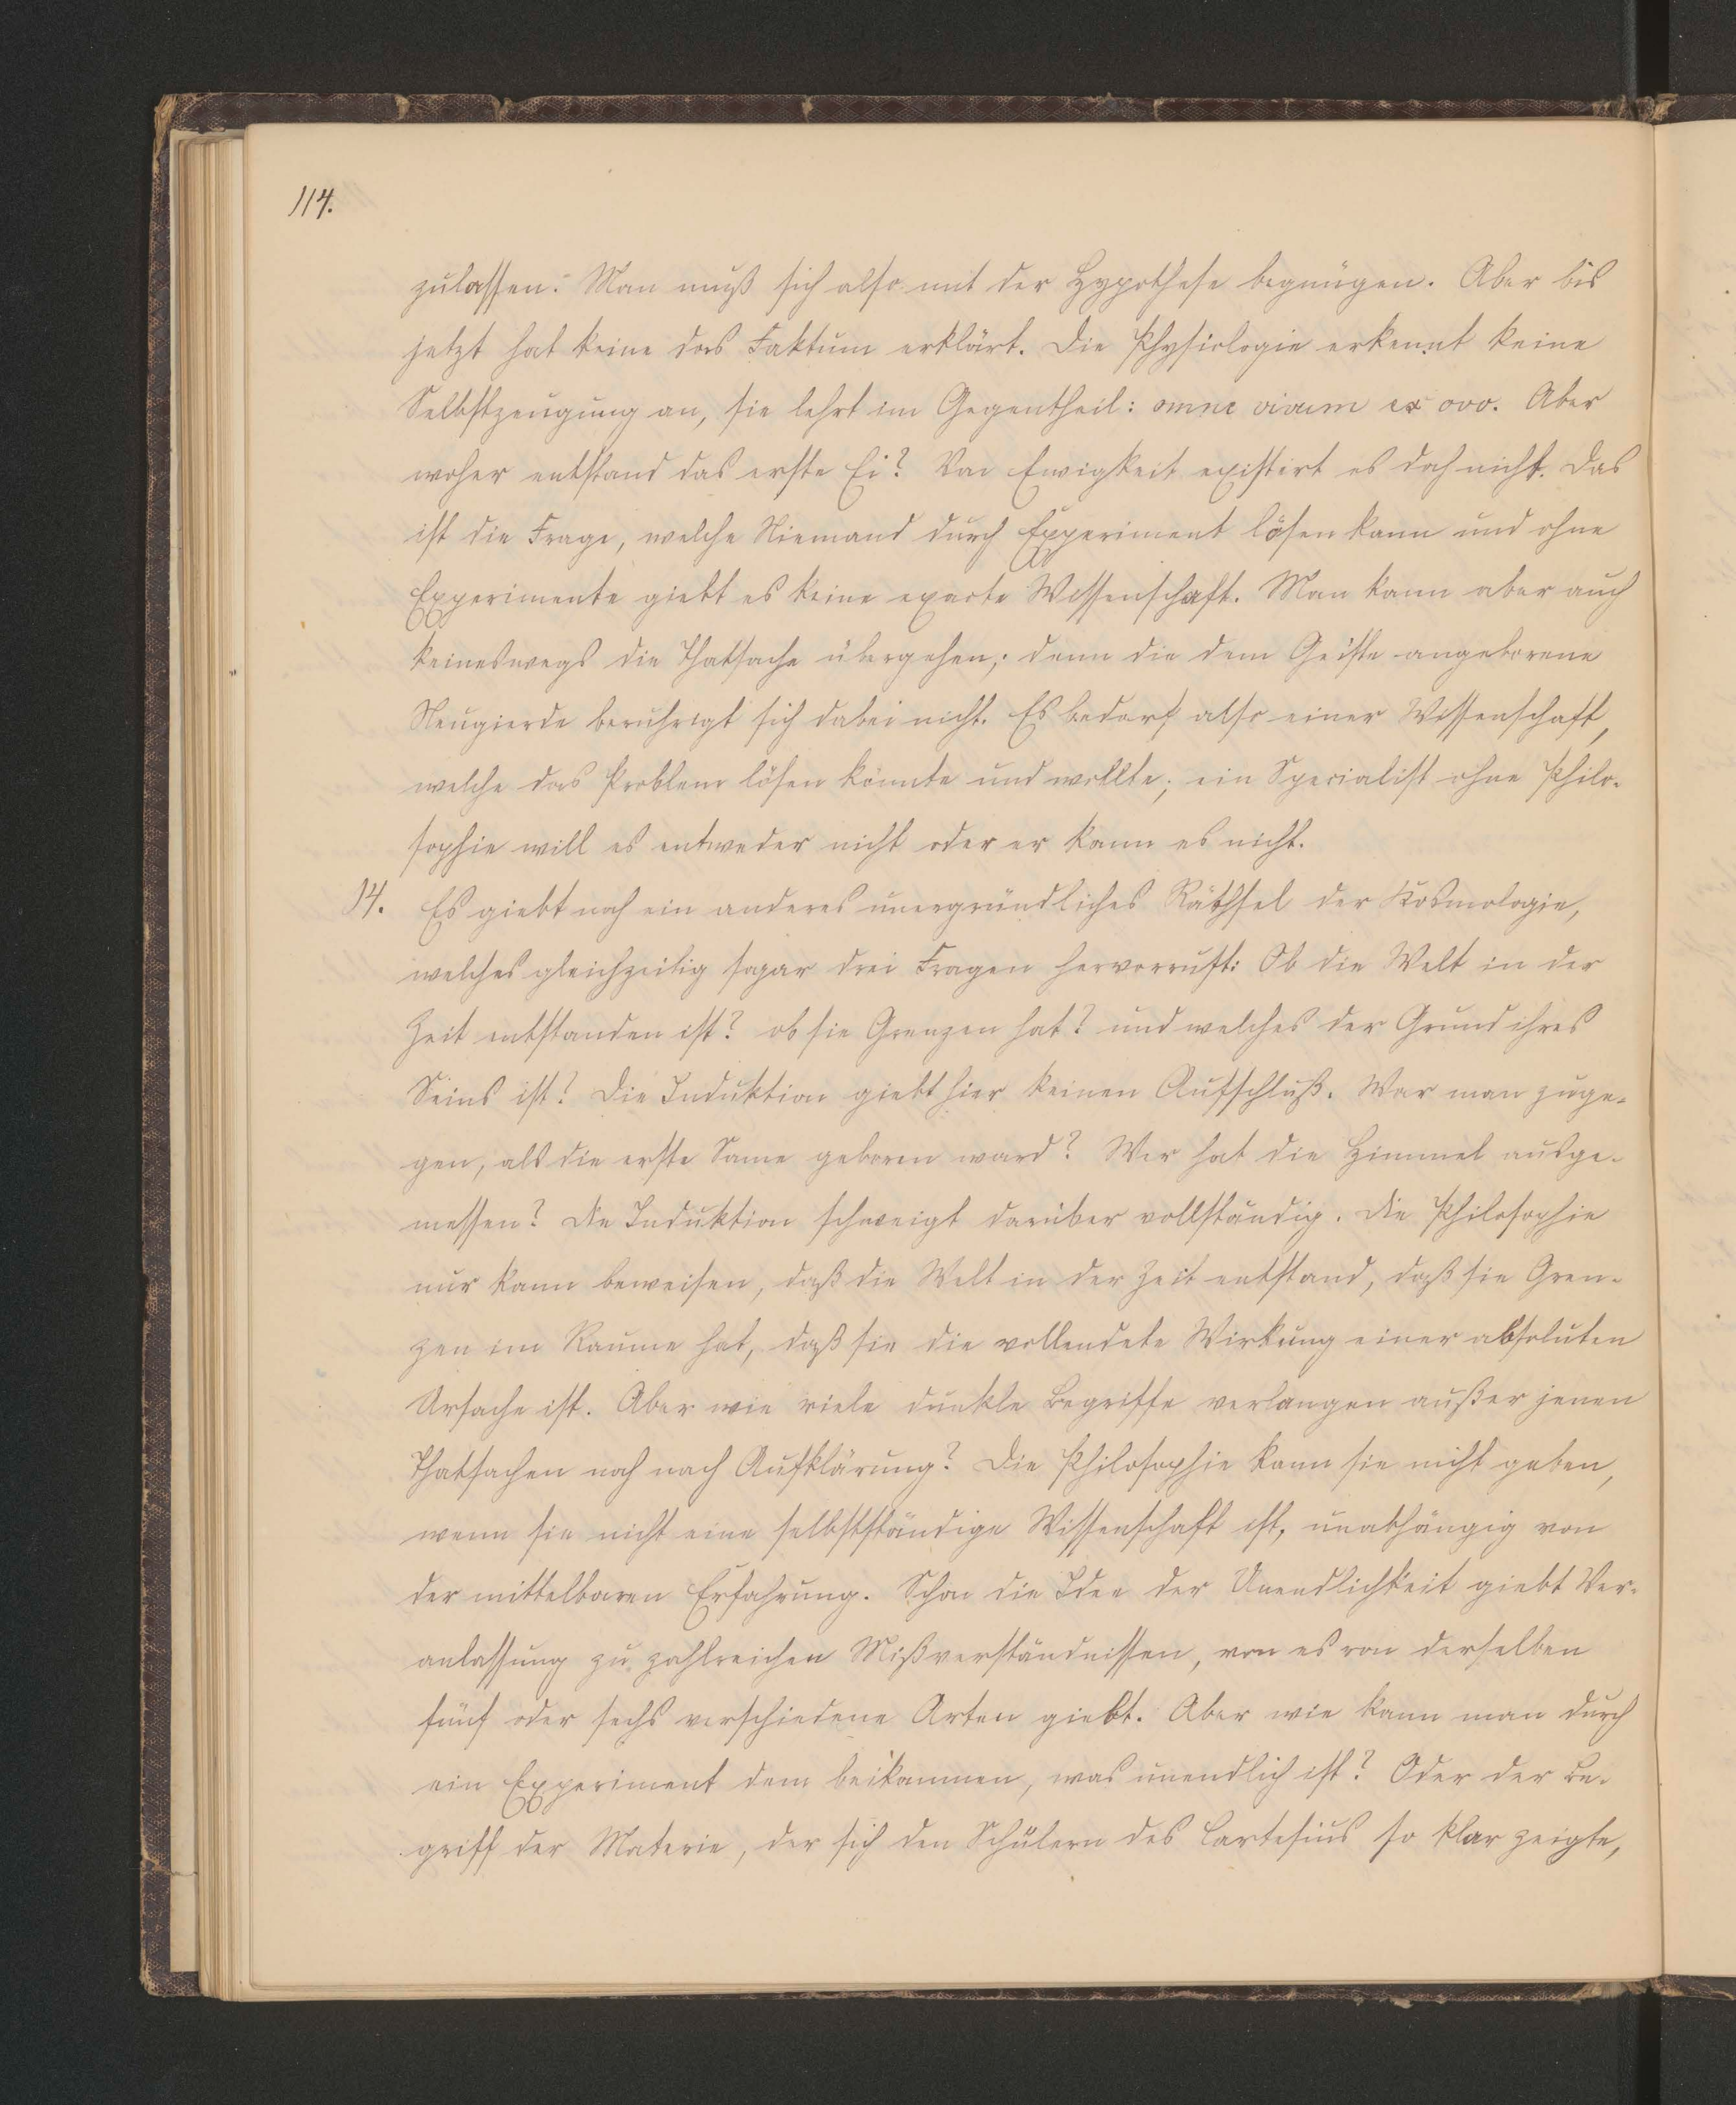 114.
zulassen. Man muß sich also mit der Hypothese begnügen. Aber bis
jetzt hat keine das Faktum erklärt. Die Physiologie erkennt keine
Selbstzeugung an, sie lehrt im Gegentheil: omne vivum ex ovo. Aber
woher entstand das erste Ei? Von Ewigkeit existirt es doch nicht. Das
ist die Frage, welche Niemand durch Experiment lösen kann und ohne
Experimente giebt es keine exacte Wissenschaft. Man kann aber auch
keineswegs die Thatsache übergehen; denn die dem Geiste angeborene
Neugierde beruhrigt sich dabei nicht. Es bedarf also einer Wissenschaft,
welche das Problem lösen könnte und wollte; ein Specialist ohne Philo-
sophie will es entweder nicht oder er kann es nicht.
14. Es giebt noch ein anderes unergründliches Räthsel der Kosmologie,
welches gleichzeitig sogar drei Fragen hervorruft: Ob die Welt in der
Zeit entstanden ist? ob sie Grenzen hat? und welches der Grund ihres
Seins ist? Die Induktion giebt hier keinen Aufschluß. War man zuge-
gen, als die erste Same geboren ward? Wer hat die Himmel ausge-
messen? Die Induktion schweigt darüber vollständig. Die Philosophie
nur kann beweisen, daß die Welt in der Zeit entstand, daß sie Gren-
zen im Raume hat, daß sie die vollendete Wirkung einer absoluten
Ursache ist. Aber wie viele dunkle Begriffe verlangen außer jenen
Thatsachen noch nach Aufklärung? Die Philosophie kann sie nicht geben,
wenn sie nicht eine selbstständige Wissenschaft ist, unabhängig von
der mittelbaren Erfahrung. Schon die Idee der Unendlichkeit giebt Ver-
anlassung zu zahlreichen Mißverständnissen, von es von derselben
fünf oder sechs verschiedene Arten giebt. Aber wie kann man durch
ein Experiment dem beikommen, was unendlich ist? Oder der Be-
griff der Materie, der sich den Schülern des Cartesius so klar zeigte,